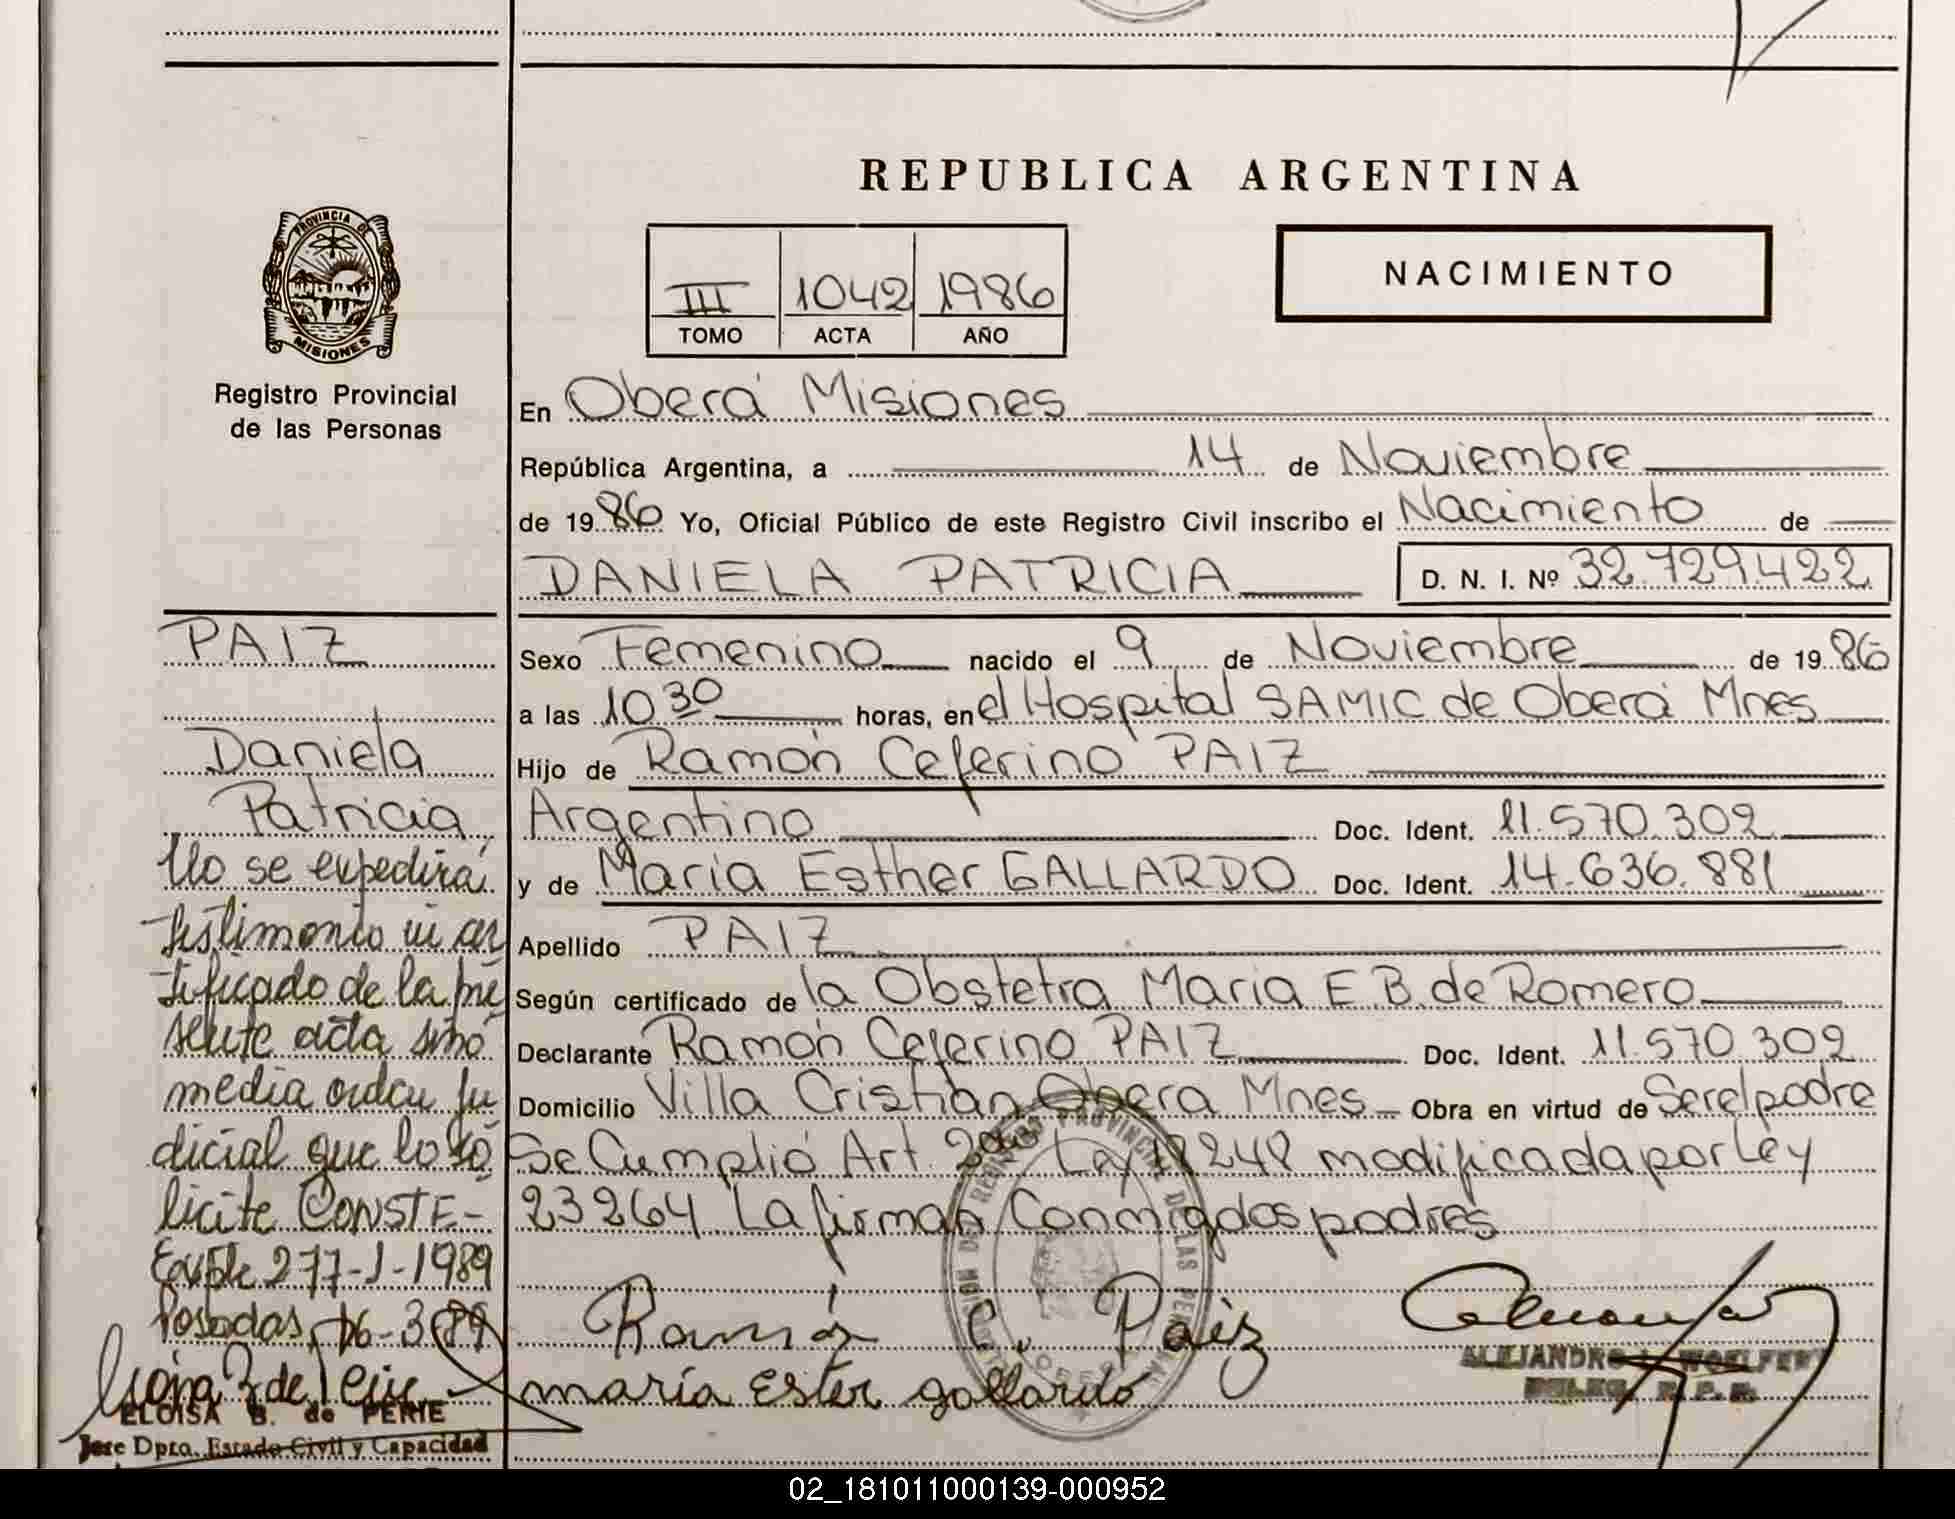 REPUBLICA ARGENTINA
PROVINCIA DE
MISIONES
Registro Provincial
de las Personas
III 1042 1986
TOMO ACTA AÑO
NACIMIENTO
En Oberá Misiones
República Argentina, a 14 de Noviembre
de 1986 Yo, Oficial Público de este Registro Civil inscribo el Nacimiento de
DANIELA PATRICIA D. N. I. Nº 32.729.422
Sexo Femenino nacido el 9 de Noviembre de 1986
a las 10 30 horas, en el Hospital SAMIC de Oberá Mnes
Hijo de Ramón Ceferino PAIZ
Argentino Doc. Ident. 11.570.309
y de María Esther GALLARDO Doc. Ident. 14.636.881
Apellido PAIZ
Según certificado de la Obstetra Maria E B. de Romero
Declarante Ramón Ceferino PAIZ Doc. Ident. 11.570.309
Domicilio Villa Cristian Obera Mnes Obra en virtud de Ser el padre
Se Cumplió Art. Ley 18248 modificada por Ley
23264 La firman Conmigo los padres
Ramón C. Paiz
maría Ester gallardo
PAIZ
Daniela
Patricia
No se expedirá
testimonio ni cer
tificado de la pre
sente acta sinó
media orden ju
dicial que lo so
licite CONSTE-
Expte 277-J-1989
Posadas, 16-3-89
ELOISA B. de PERIE
Jefe Dpto. Estado Civil y Capacidad
ALEJANDRO
02_181011000139-000952